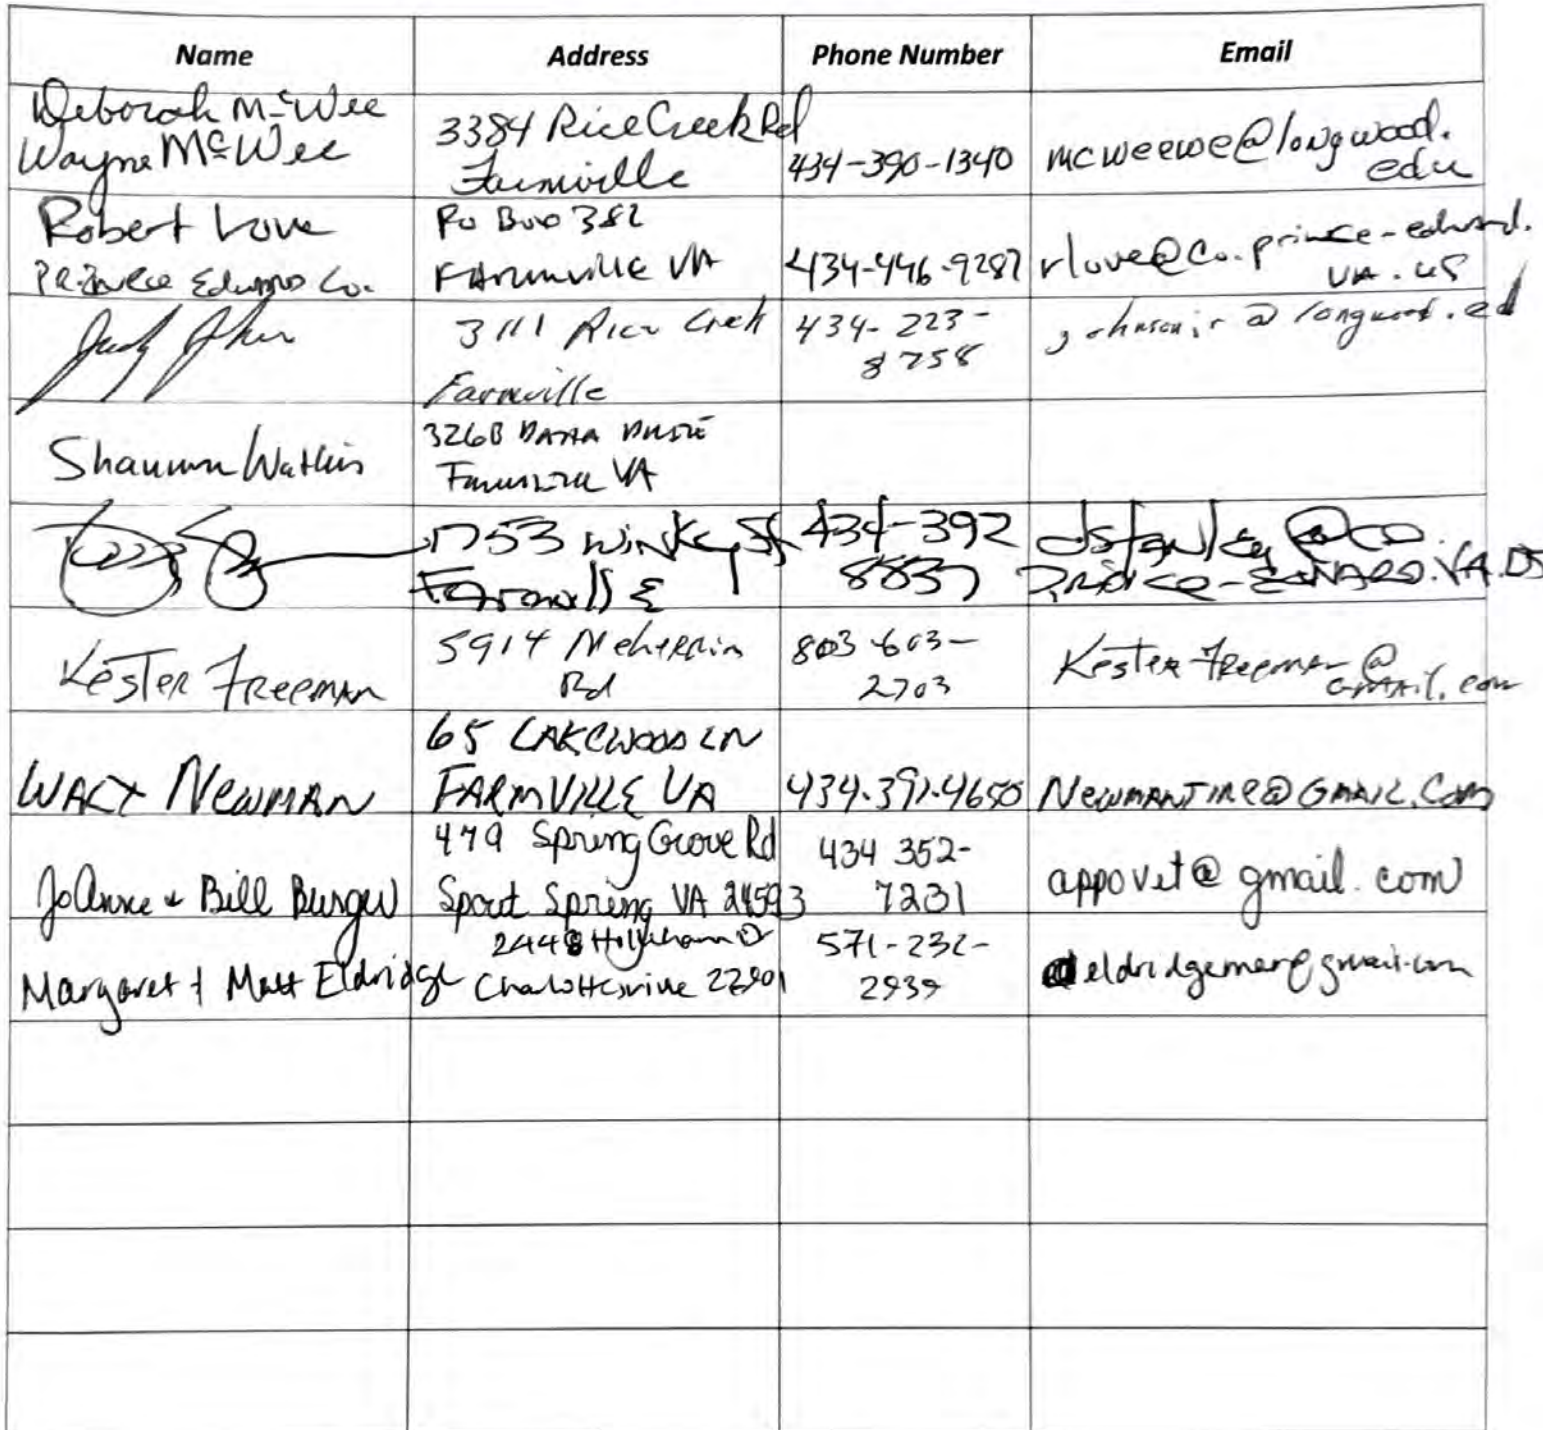 Name Address Phone Number Email
Deborah McWee
Wayne McWee
3384 Rice Creek Rd
Farmville
434-390-1340
mcweewe@longwood.
edu
Robert Love
Prince Edward Co.
Po Box 382
FARMVILLE VA
434-446-9287
rlove@co.prince-edward.
va.us
3111 Rice Creek
Farmville
434-223-
8758
johnsonjr@longwood.ed
Watkins
326B
VA
1753
Farmville
434-392
8837
dstanley@co.
Prince-EDWARD.VA.US
Kester Freeman
5914 Meherrin
Rd
803-603-
2703
KesterFreeman@
GMAil.com
WALT NEWMAN
65 LAKEWOOD LN
FARMVILLE VA
434.391.4650
NEWMANTIRE@GMAIL.COM
JoAnne & Bill Burger
479 Spring Grove Rd
Spout Spring VA 24593
434 352-
7231
appovet@gmail.com
Margaret & Matt Eldridge
2448 Dr
Charlottesville 22901
571-232-
2939
eldridgemar@gmail.com